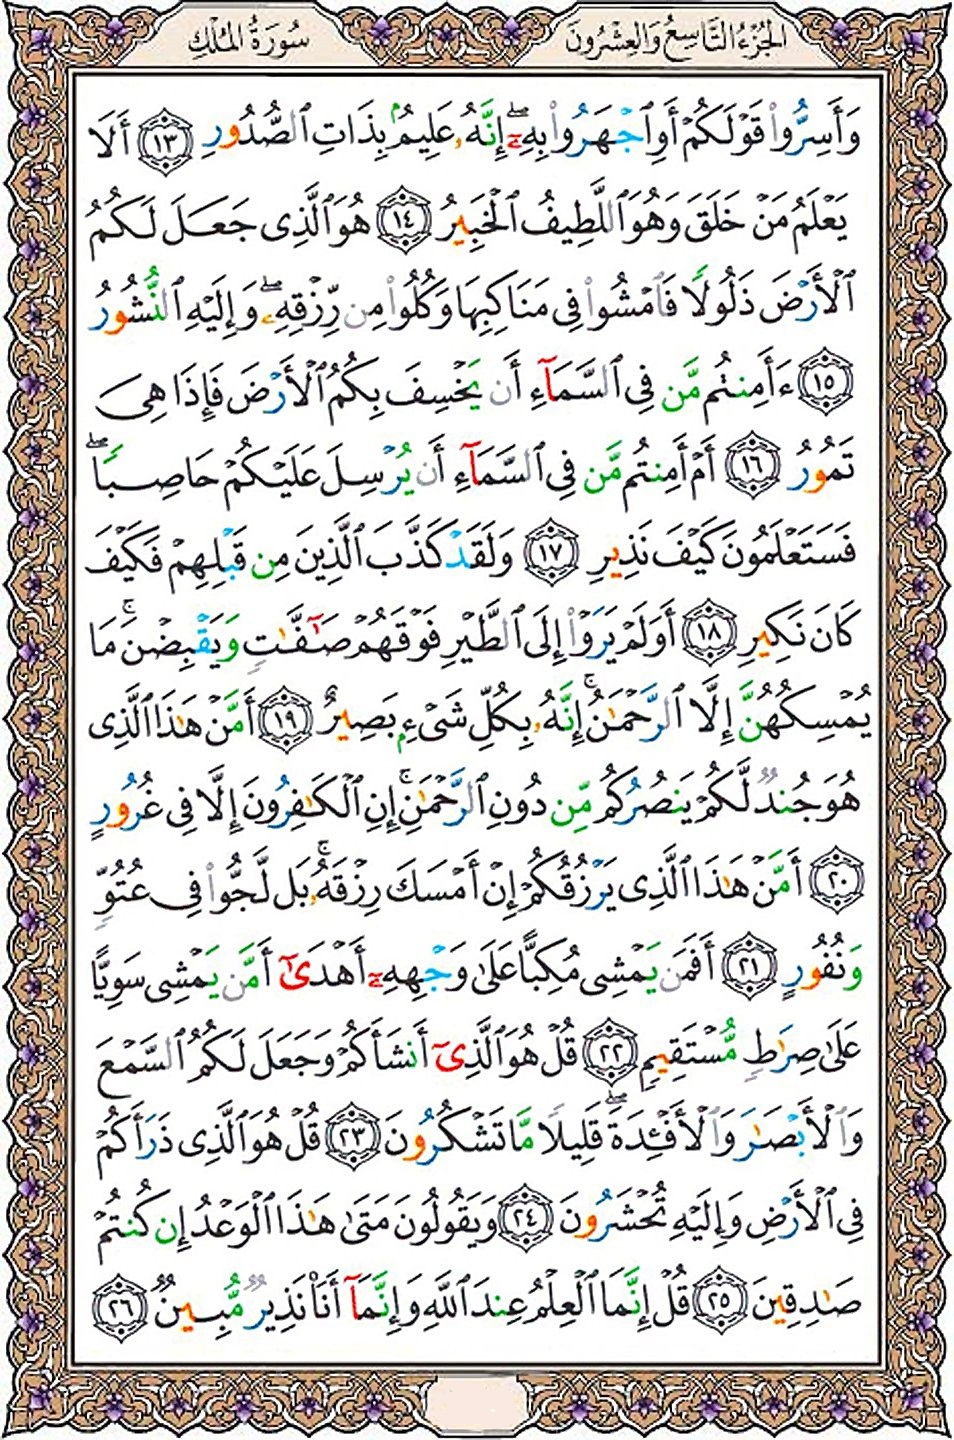 الجُزْءُ التَّاسِعُ وَالعِشْرُونَ
سُورَةُ المُلْكِ
وَأَسِرُّوا۟ قَوْلَكُمْ أَوِ ٱجْهَرُوا۟ بِهِۦٓ ۖ إِنَّهُۥ عَلِيمٌۢ بِذَاتِ ٱلصُّدُورِ ١٣ أَلَا
يَعْلَمُ مَنْ خَلَقَ وَهُوَ ٱللَّطِيفُ ٱلْخَبِيرُ ١٤ هُوَ ٱلَّذِى جَعَلَ لَكُمُ
ٱلْأَرْضَ ذَلُولًا فَٱمْشُوا۟ فِى مَنَاكِبِهَا وَكُلُوا۟ مِن رِّزْقِهِۦ ۖ وَإِلَيْهِ ٱلنُّشُورُ
١٥ ءَأَمِنتُم مَّن فِى ٱلسَّمَآءِ أَن يَخْسِفَ بِكُمُ ٱلْأَرْضَ فَإِذَا هِىَ
تَمُورُ ١٦ أَمْ أَمِنتُم مَّن فِى ٱلسَّمَآءِ أَن يُرْسِلَ عَلَيْكُمْ حَاصِبًا ۖ
فَسَتَعْلَمُونَ كَيْفَ نَذِيرِ ١٧ وَلَقَدْ كَذَّبَ ٱلَّذِينَ مِن قَبْلِهِمْ فَكَيْفَ
كَانَ نَكِيرِ ١٨ أَوَلَمْ يَرَوْا۟ إِلَى ٱلطَّيْرِ فَوْقَهُمْ صَـٰٓفَّـٰتٍ وَيَقْبِضْنَ ۚ مَا
يُمْسِكُهُنَّ إِلَّا ٱلرَّحْمَـٰنُ ۚ إِنَّهُۥ بِكُلِّ شَىْءٍۭ بَصِيرٌ ١٩ أَمَّنْ هَـٰذَا ٱلَّذِى
هُوَ جُندٌ لَّكُمْ يَنصُرُكُم مِّن دُونِ ٱلرَّحْمَـٰنِ ۚ إِنِ ٱلْكَـٰفِرُونَ إِلَّا فِى غُرُورٍ
٢٠ أَمَّنْ هَـٰذَا ٱلَّذِى يَرْزُقُكُمْ إِنْ أَمْسَكَ رِزْقَهُۥ ۚ بَل لَّجُّوا۟ فِى عُتُوٍّ
وَنُفُورٍ ٢١ أَفَمَن يَمْشِى مُكِبًّا عَلَىٰ وَجْهِهِۦٓ أَهْدَىٰٓ أَمَّن يَمْشِى سَوِيًّا
عَلَىٰ صِرَٰطٍ مُّسْتَقِيمٍ ٢٢ قُلْ هُوَ ٱلَّذِىٓ أَنشَأَكُمْ وَجَعَلَ لَكُمُ ٱلسَّمْعَ
وَٱلْأَبْصَـٰرَ وَٱلْأَفْـِٔدَةَ ۖ قَلِيلًا مَّا تَشْكُرُونَ ٢٣ قُلْ هُوَ ٱلَّذِى ذَرَأَكُمْ
فِى ٱلْأَرْضِ وَإِلَيْهِ تُحْشَرُونَ ٢٤ وَيَقُولُونَ مَتَىٰ هَـٰذَا ٱلْوَعْدُ إِن كُنتُمْ
صَـٰدِقِينَ ٢٥ قُلْ إِنَّمَا ٱلْعِلْمُ عِندَ ٱللَّهِ وَإِنَّمَآ أَنَا۠ نَذِيرٌ مُّبِينٌ ٢٦